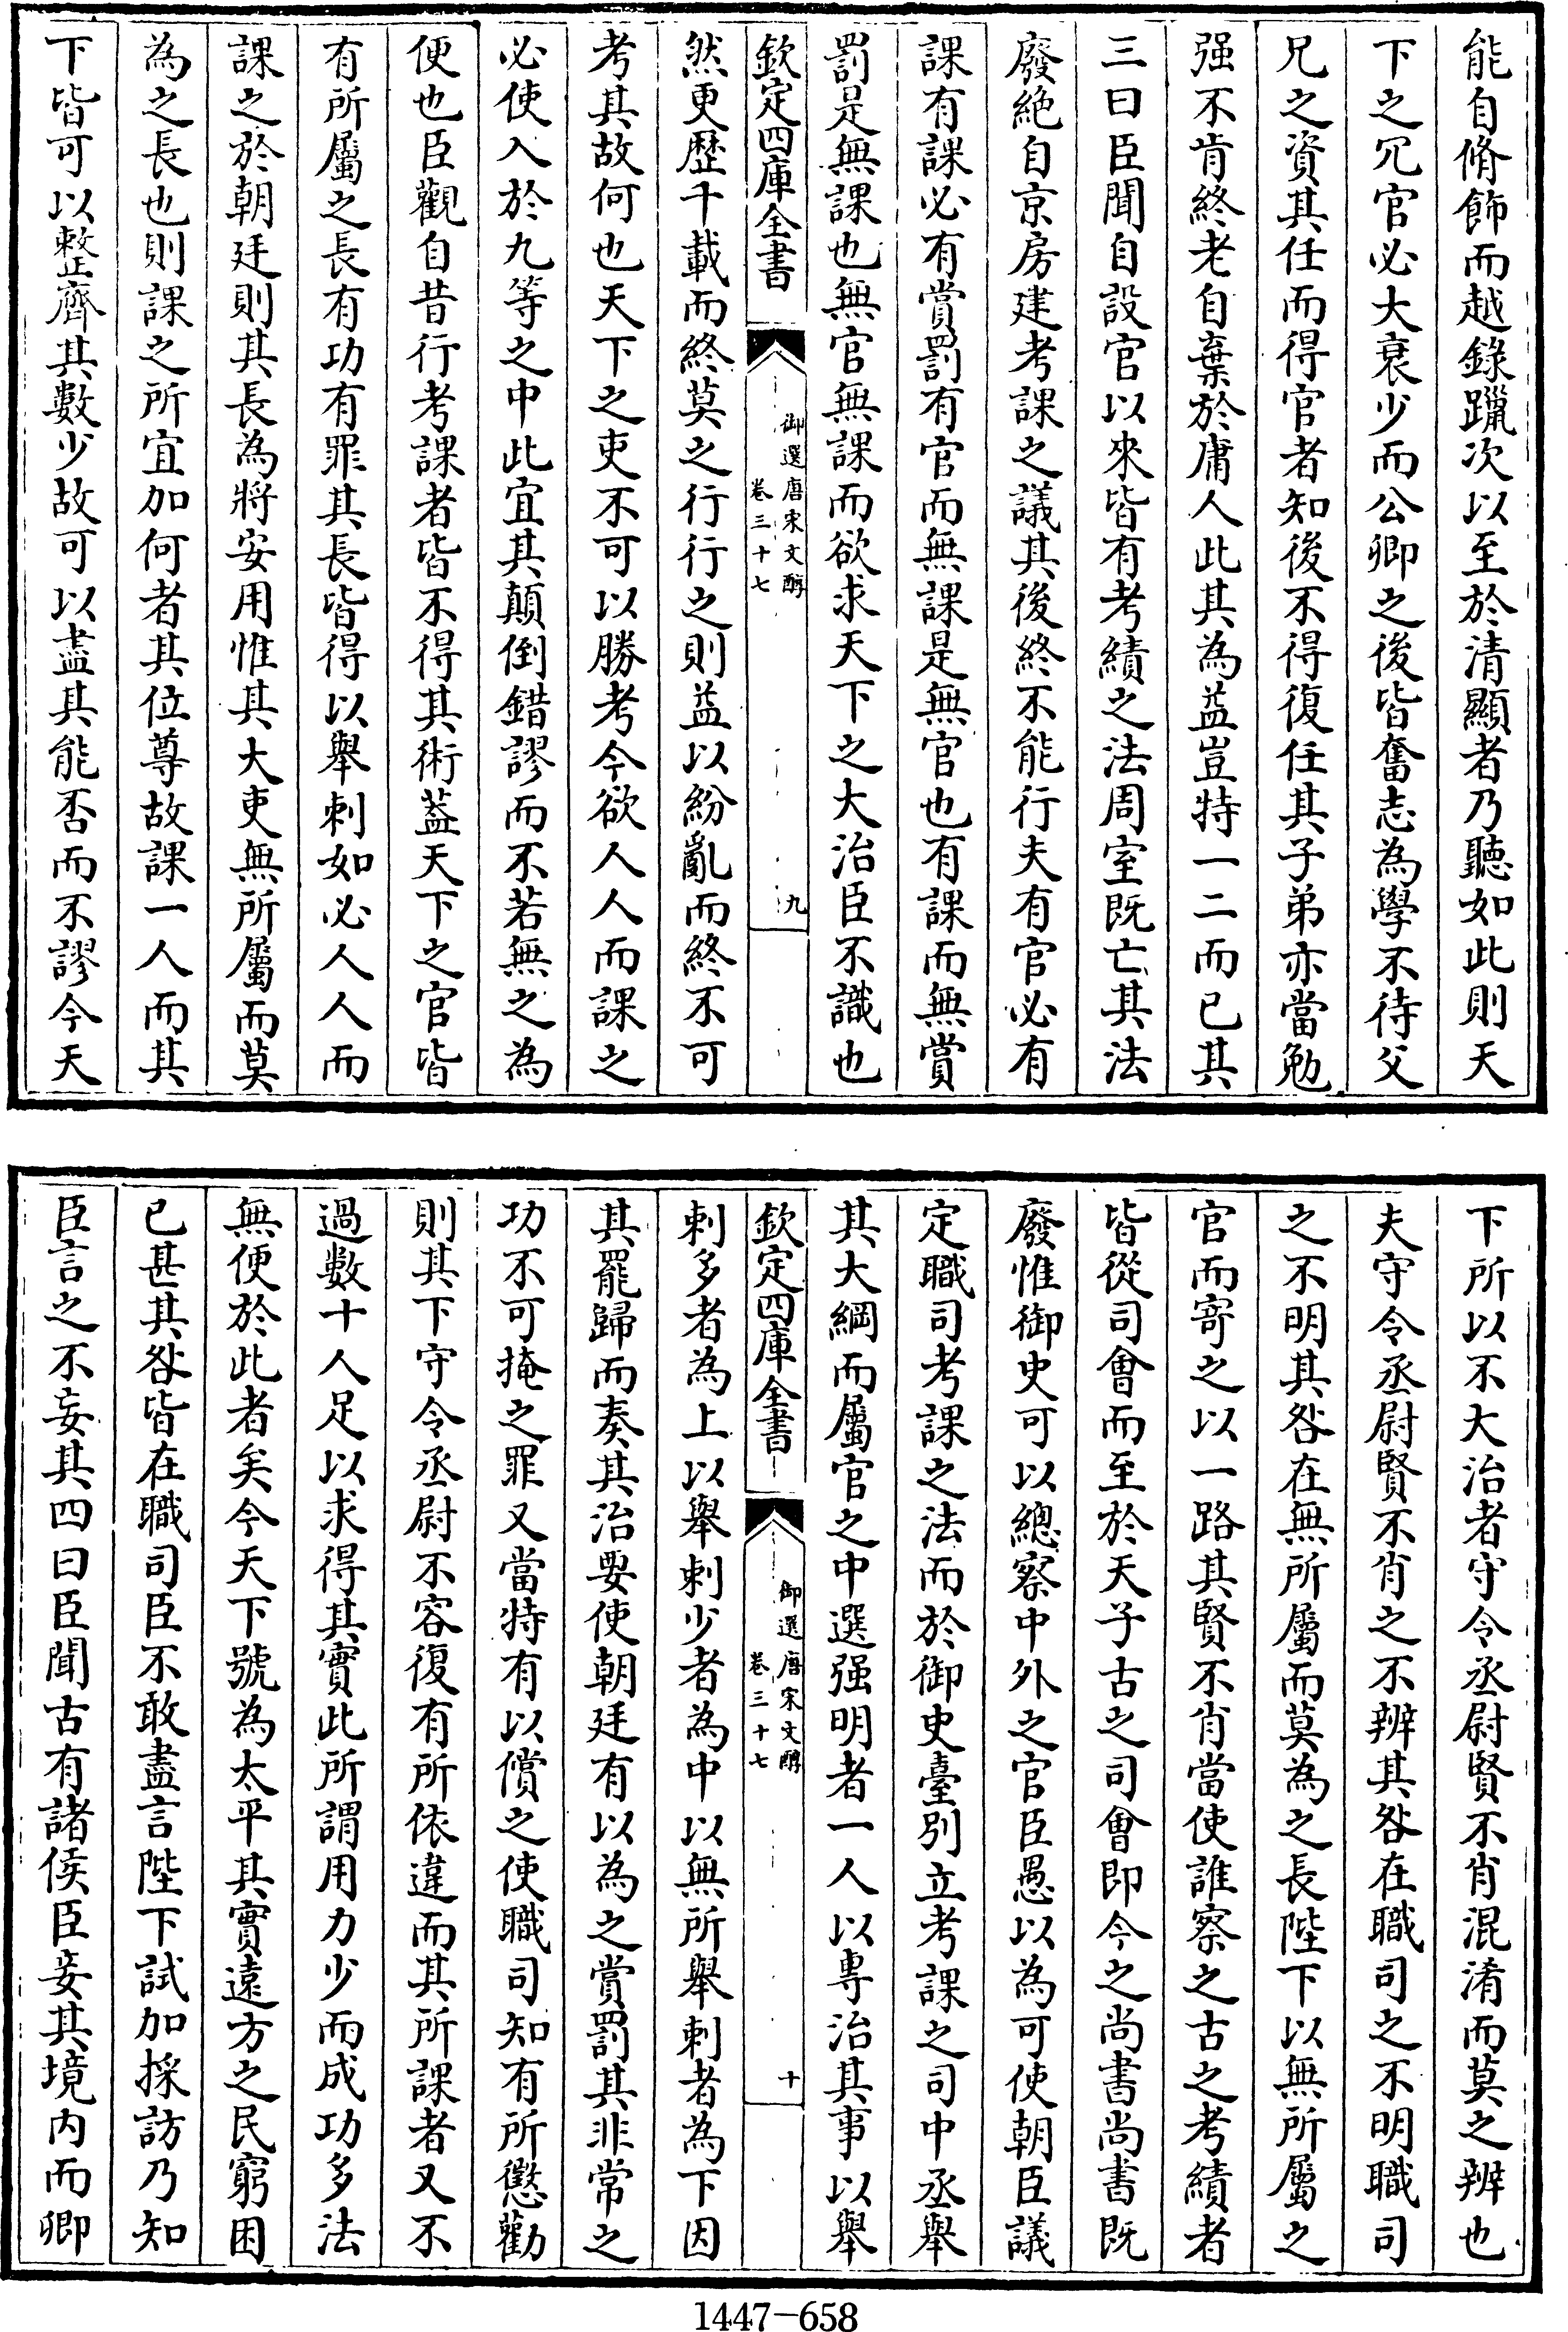 能自脩飾而越錄躐次以至於清顯者乃聽如此則天
下之冗官必大衰少而公卿之後皆奮志為學不待父
兄之資其任而得官者知後不得復任其子弟亦當勉
强不肯終老自棄於庸人此其為益豈特一二而已其
三曰臣聞自設官以來皆有考績之法周室既亡其法
廢絶自京房建考課之議其後終不能行夫有官必有
課有課必有賞罰有官而無課是無官也有課而無賞
罰是無課也無官無課而欲求天下之大治臣不識也
欽定四庫全書
御選唐宋文醇
卷三十七
九
然更歷千載而終莫之行行之則益以紛亂而終不可
考其故何也天下之吏不可以勝考今欲人人而課之
必使入於九等之中此宜其顛倒錯謬而不若無之為
便也臣觀自昔行考課者皆不得其術葢天下之官皆
有所屬之長有功有罪其長皆得以舉刺如必人人而
課之於朝廷則其長為將安用惟其大吏無所屬而莫
為之長也則課之所宜加何者其位尊故課一人而其
下皆可以整齊其數少故可以盡其能否而不謬今天
下所以不大治者守令丞尉賢不肖混淆而莫之辨也
夫守令丞尉賢不肖之不辨其咎在職司之不明職司
之不明其咎在無所屬而莫為之長陛下以無所屬之
官而寄之以一路其賢不肖當使誰察之古之考績者
皆從司會而至於天子古之司會即今之尚書尚書既
廢惟御史可以總察中外之官臣愚以為可使朝臣議
定職司考課之法而於御史臺別立考課之司中丞舉
其大綱而屬官之中選强明者一人以專治其事以舉
欽定四庫全書
御選唐宋文醇
卷三十七
十
刺多者為上以舉刺少者為中以無所舉刺者為下因
其罷歸而奏其治要使朝廷有以為之賞罰其非常之
功不可掩之罪又當特有以償之使職司知有所懲勸
則其下守令丞尉不容復有所依違而其所課者又不
過數十人足以求得其實此所謂用力少而成功多法
無便於此者矣今天下號為太平其實遠方之民窮困
已甚其咎皆在職司臣不敢盡言陛下試加採訪乃知
臣言之不妄其四曰臣聞古有諸侯臣妾其境内而卿
1447-658